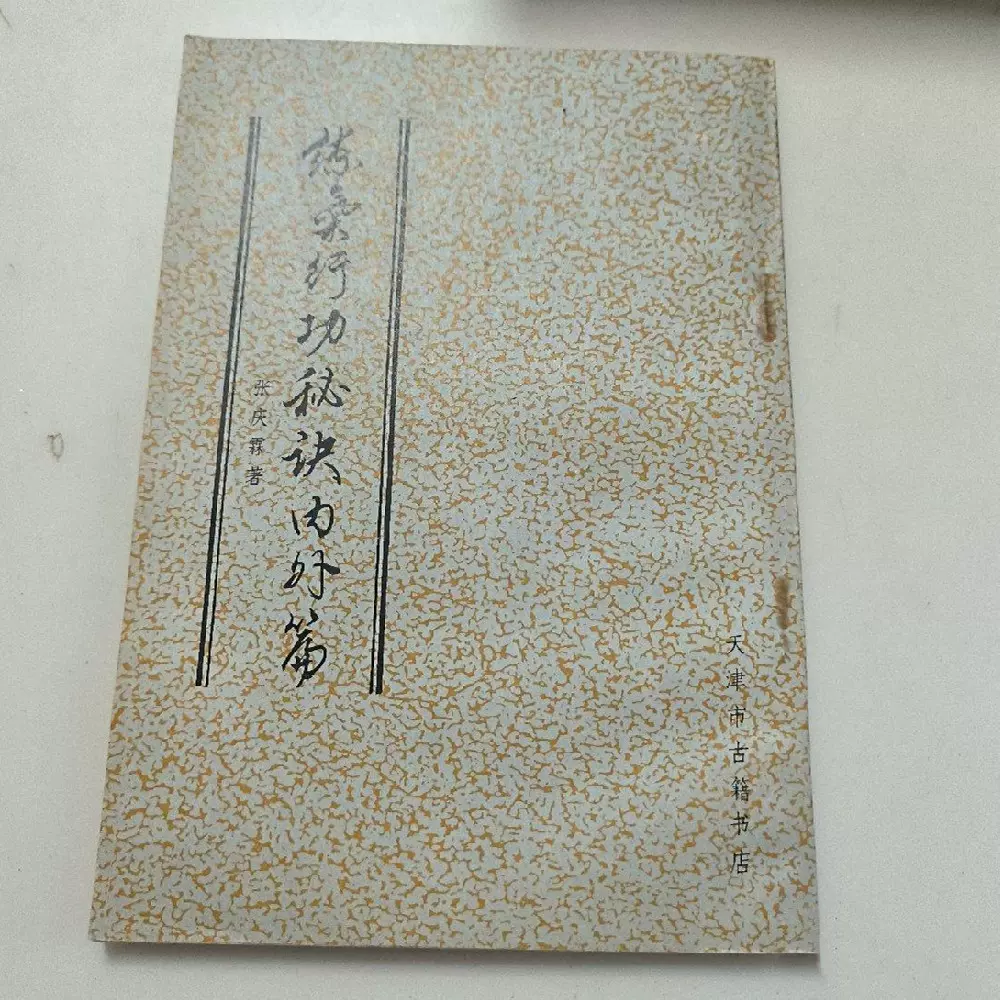 练氣行功秘诀内外篇
张庆霖著
天津市古籍书店